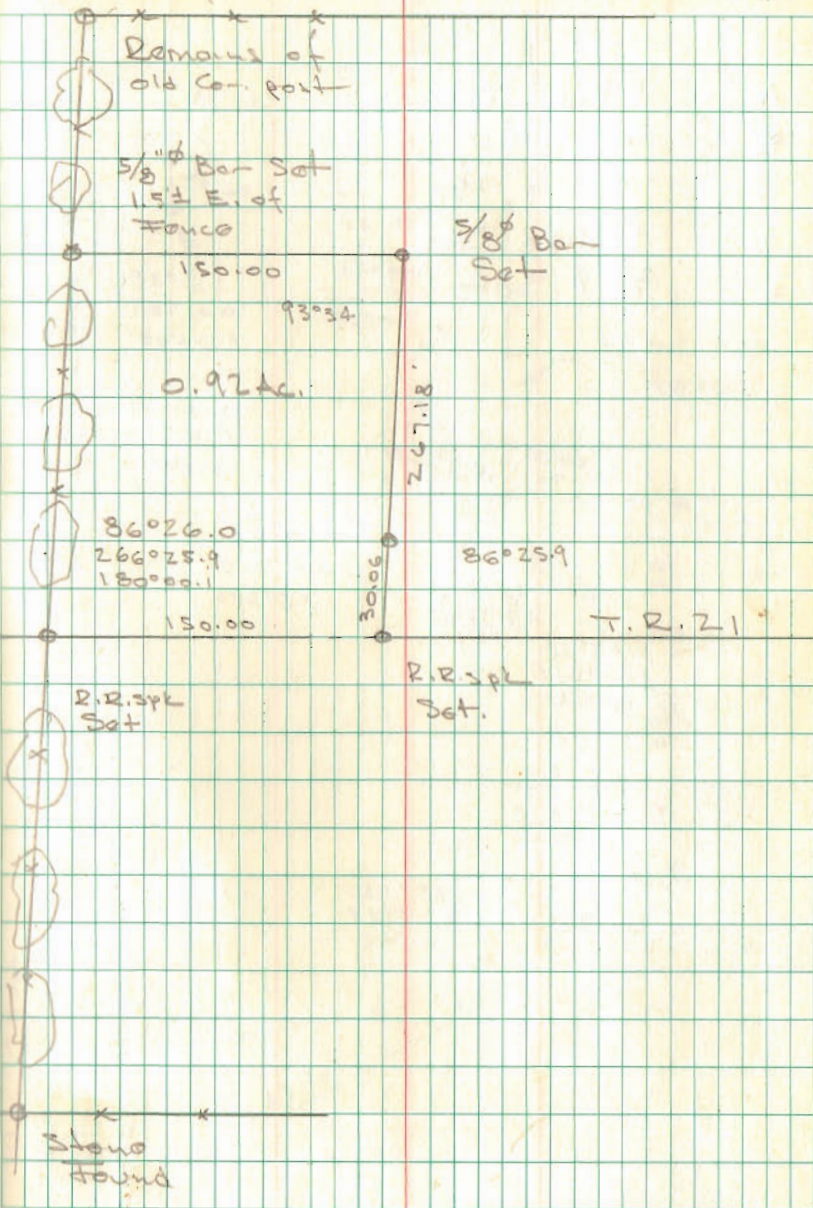 Remains of
old Cor. post
5/8"ϕ Bar Set
1.5± E. of
Fence
5/8"ϕ Bar
Set
150.00
93°34
0.92 Ac.
267.18'
86°26.0
266°25.9
180°00.1
86°25.9
30.06
150.00
T.R. 21
R.R. spk
Set
R.R. spk
Set.
Stone
Found